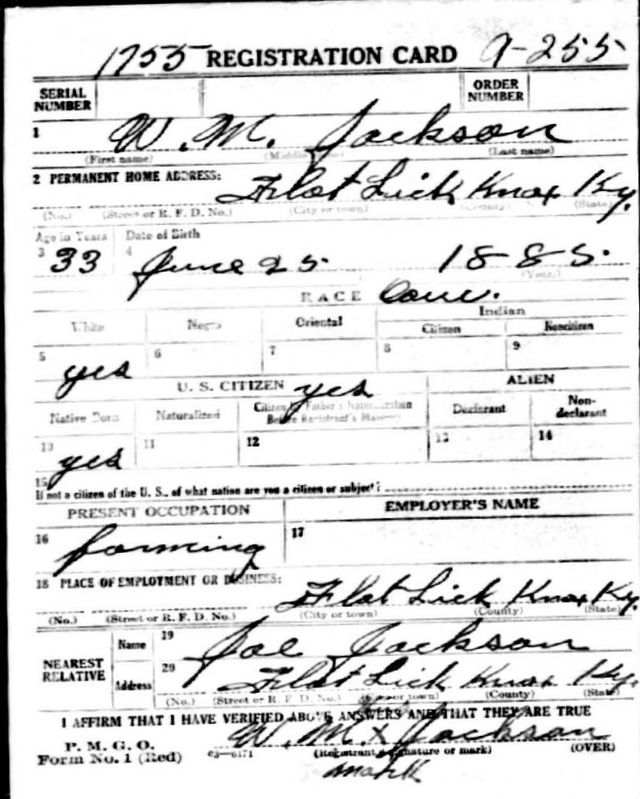 1755 REGISTRATION CARD 9-255
SERIAL NUMBER ORDER NUMBER
1 W. M. Jackson
(First name) (Middle name) (Last name)
2 PERMANENT HOME ADDRESS: Flat Lick Knox Ky.
(No.) (Street or R. F. D. No.) (City or town) (County) (State)
Age in Years Date of Birth
3 33 4 June 25 1885.
(Year.)
RACE Cau.
White Negro Oriental Indian
Citizen Noncitizen
5 yes 6 7 8 9
U. S. CITIZEN yes ALIEN
Native Born Naturalized Citizen by Father's Naturalization Before Registrant's Majority Declarant Non-declarant
10 yes 11 12 13 14
15 If not a citizen of the U. S., of what nation are you a citizen or subject?
PRESENT OCCUPATION EMPLOYER'S NAME
16 farming 17
18 PLACE OF EMPLOYMENT OR BUSINESS: Flat Lick Knox Ky
(No.) (Street or R. F. D. No.) (City or town) (County) (State)
NEAREST RELATIVE Name 19 Joe Jackson
Address 20 Flat Lick Knox Ky.
(No.) (Street or R. F. D. No.) (City or town) (County) (State)
I AFFIRM THAT I HAVE VERIFIED ABOVE ANSWERS AND THAT THEY ARE TRUE
P. M. G. O.
Form No. 1 (Red) 03—6171 W. M. x Jackson
(Registrant's signature or mark) (OVER)
mark